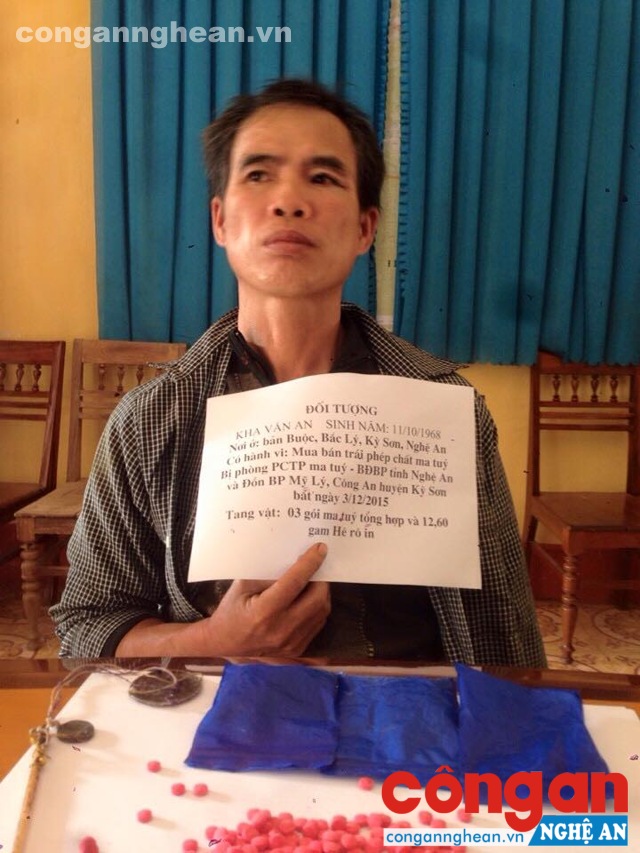 congannghean.vn
ĐỐI TƯỢNG
KHA VĂN AN SINH NĂM: 11/10/1968
Nơi ở: bản Buộc, Bắc Lý, Kỳ Sơn, Nghệ An
Có hành vi: Mua bán trái phép chất ma tuý
Bị phòng PCTP ma tuý - BĐBP tỉnh Nghệ An
và Đồn BP Mỹ Lý, Công An huyện Kỳ Sơn
bắt ngày 3/12/2015
Tang vật: 03 gói ma tuý tổng hợp và 12,60
gam Hê rô in
côngan
congannghean.vn
NGHỆ AN